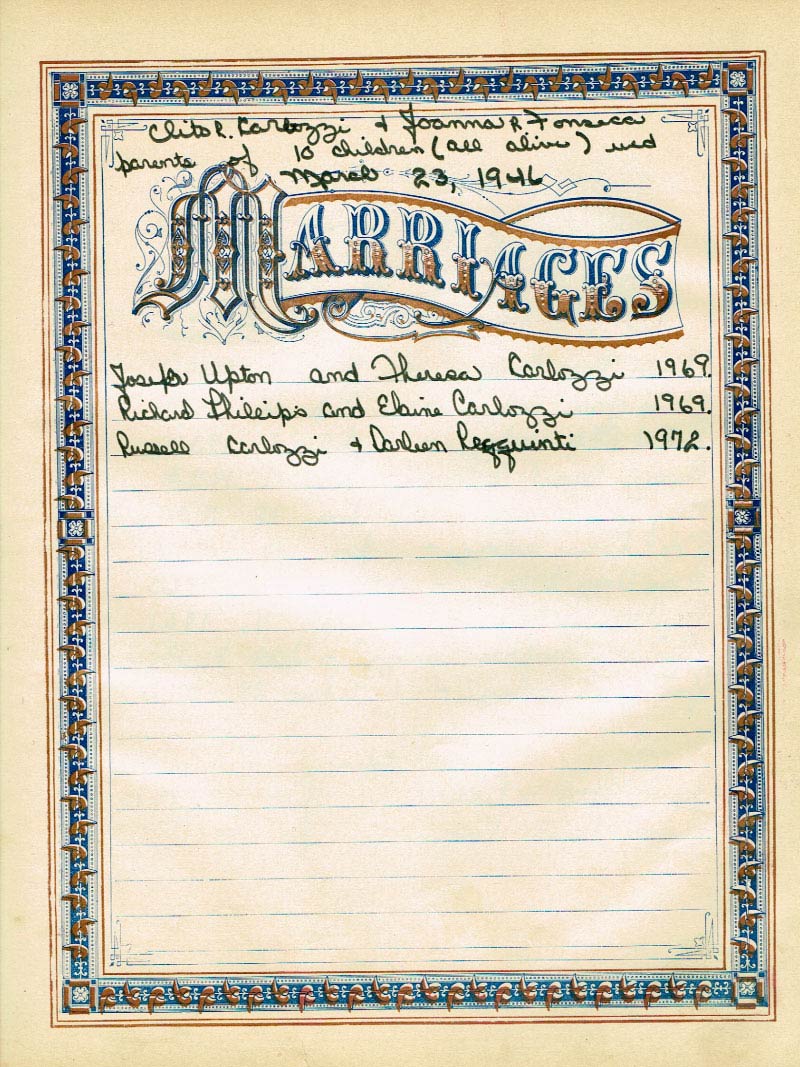 Clito R. Carlozzi & Joanna R Fonseca
parents of 10 children (all alive) wed
March 23, 1946
MARRIAGES
Joseph Upton and Theresa Carlozzi 1969.
Richard Phillips and Elaine Carlozzi 1969.
Russell Carlozzi & Darleen 1972.